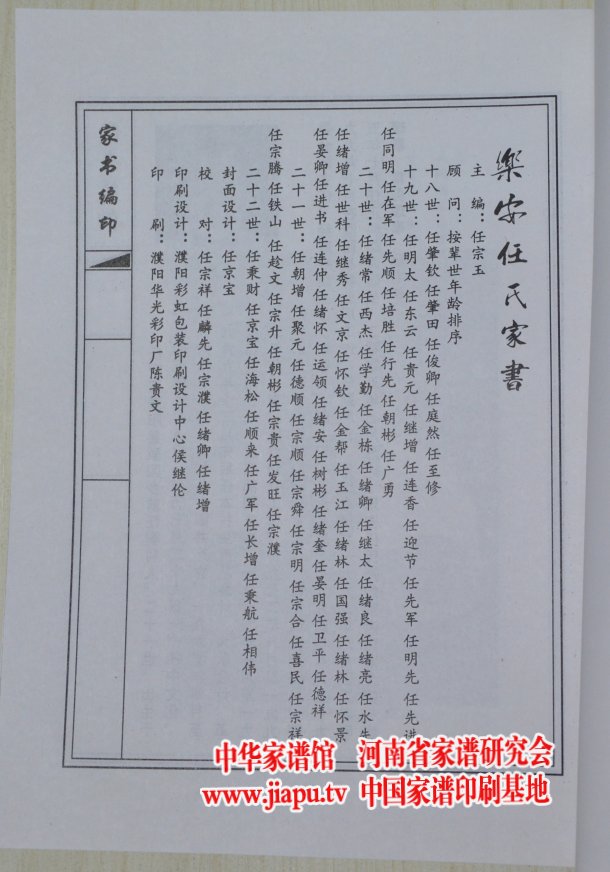 樂安任氏家書
主编：任宗玉
顾问：按辈世年龄排序
十八世：任肇钦 任肇田 任俊卿 任庭然 任至修
十九世：任明太 任东云 任贵元 任继增 任连香 任迎节 任先军 任明先 任先进
任同明 任在军 任先顺 任培胜 任行先 任朝彬 任广勇
二十世：任绪常 任西杰 任学勤 任金栋 任绪卿 任继太 任绪良 任绪亮 任水先
任绪增 任世科 任继秀 任文京 任怀钦 任金帮 任玉江 任绪林 任国强 任绪林 任怀景
任晏卿 任进书 任连仲 任绪怀 任运领 任绪安 任树彬 任绪奎 任晏明 任卫平 任德祥
二十一世：任朝增 任聚元 任德顺 任宗顺 任宗舜 任宗明 任宗合 任喜民 任宗祥
任宗腾 任铁山 任趁文 任宗升 任朝彬 任宗贵 任发旺 任宗濮
二十二世：任秉财 任京宝 任海松 任顺来 任广军 任长增 任秉航 任相伟
封面设计：任京宝
校对：任宗祥 任麟先 任宗濮 任绪卿 任绪增
印刷设计：濮阳彩虹包装印刷设计中心侯继伦
印刷：濮阳华光彩印厂陈贵文
家书编印
中华家谱馆 河南省家谱研究会
www.jiapu.tv 中国家谱印刷基地